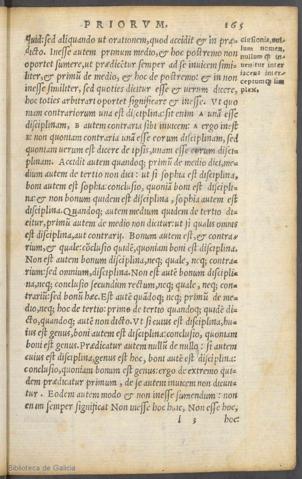 PRIORVM. 165
quid: sed aliquando ut orationem, quod accidit & in præ-
dicto. Inesse autem primum medio, & hoc postremo non
oportet sumere, ut prædicetur semper ad se inuicem simi-
liter, & primũ de medio, & hoc de postremo: & in non
inesse similiter, sed quoties dicitur esse & uerum dicere,
hoc toties arbitrari oportet significare & inesse. Vt quo
niam contrariorum una est disciplina: sit enim A unã esse
disciplinam, B autem contraria sibi inuicem: A ergo inest
B: non quoniam contraria unã esse eorum disciplinam, sed
quoniam uerum est dicere de ipsis, unam esse eorum disci-
plinam. Accidit autem quandoq; primũ de medio dici, me-
dium autem de tertio non dici: ut si sophia est disciplina,
boni autem est sophia: conclusio, quoniã boni est discipli-
na: & non bonum quidem est disciplina, sophia autem est
disciplina. Quandoq; autem medium quidem de tertio di-
citur, primũ autem de medio non dicitur: ut si qualis omnis
est disciplina, aut contrarij. Bonum autem est, & contra-
rium, & quale: cõclusio quidẽ, quoniam boni est disciplina.
Non est autem bonum disciplina, neq; quale, neq; contra-
rium: sed omnium, disciplina. Non est autẽ bonum discipli-
na, neq; conclusio secundum rectum, neq; quale, neq; con-
trariũ: sed bonũ hæc. Est autẽ quãdoq; neq; primũ de me-
dio, neq; hoc de tertio: primo de tertio quandoq; quidẽ di-
cto, quandoq; autẽ non dicto. Vt si cuius est disciplina, hu-
ius est genus, boni autem est disciplina: conclusio, quoniam
boni est genus. Prædicatur autem nullũ de nullo: si autem
cuius est disciplina, genus est hoc, boni autẽ est disciplina:
conclusio, quoniam bonum est genus: ergo de extremo qui-
dem prædicatur primum, de se autem inuicem non dicun-
tur. Eodem autem modo & non inesse sumendum: non
enim semper significat Non inesse hoc huic, Non esse hoc,
l 3 hoc
nulium nomen,
nullum
uenitur inter
iacens inter-
ceptum
plex.
Biblioteca de Galicia